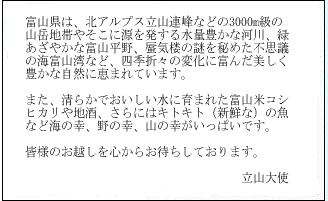 富山県は、北アルプス立山連峰などの3000m級の
山岳地帯やそこに源を発する水量豊かな河川、緑
あざやかな富山平野、蜃気楼の謎を秘めた不思議
の海富山湾など、四季折々の変化に富んだ美しく
豊かな自然に恵まれています。
また、清らかでおいしい水に育まれた富山米コシ
ヒカリや地酒、さらにはキトキト（新鮮な）の魚
など海の幸、野の幸、山の幸がいっぱいです。
皆様のお越しを心からお待ちしております。
立山大使